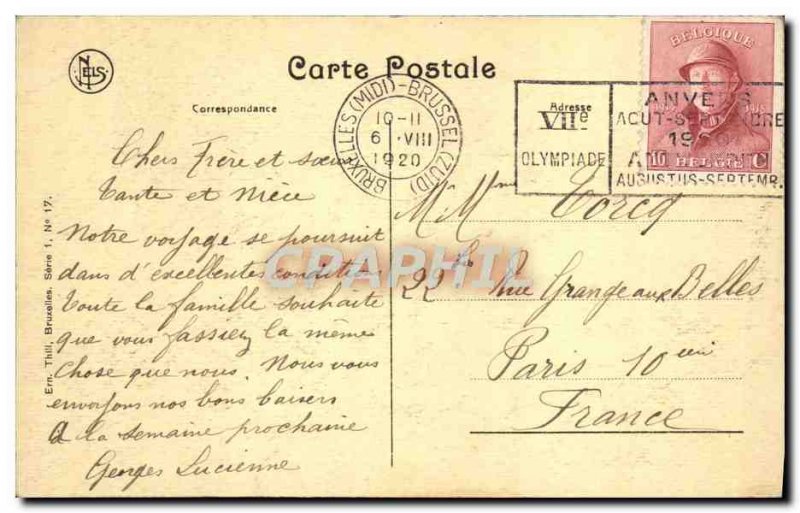 NELS
Carte Postale
Correspondance
Adresse
BRUXELLES (MIDI) - BRUSSEL (ZUID)
10-11
6 VIII
1920
VIIe
OLYMPIADE
ANVERS
AOUT-SEPTEMBRE
AUGUSTUS-SEPTEMB.
BELGIQUE
10 BELGIË C
Chers Frère et sœur
Tante et Nièce
Notre voyage se poursuit
dans d'excellentes conditions
Toute la famille souhaite
que vous fassiez la même
chose que nous. Nous vous
envoyons nos bons baisers
A la semaine prochaine
Georges Lucienne
M Mme Torcq
22 bis Rue Grange aux Belles
Paris 10
France
Ern. Thill, Bruxelles. Série 1, No 17.
CPAPHIL